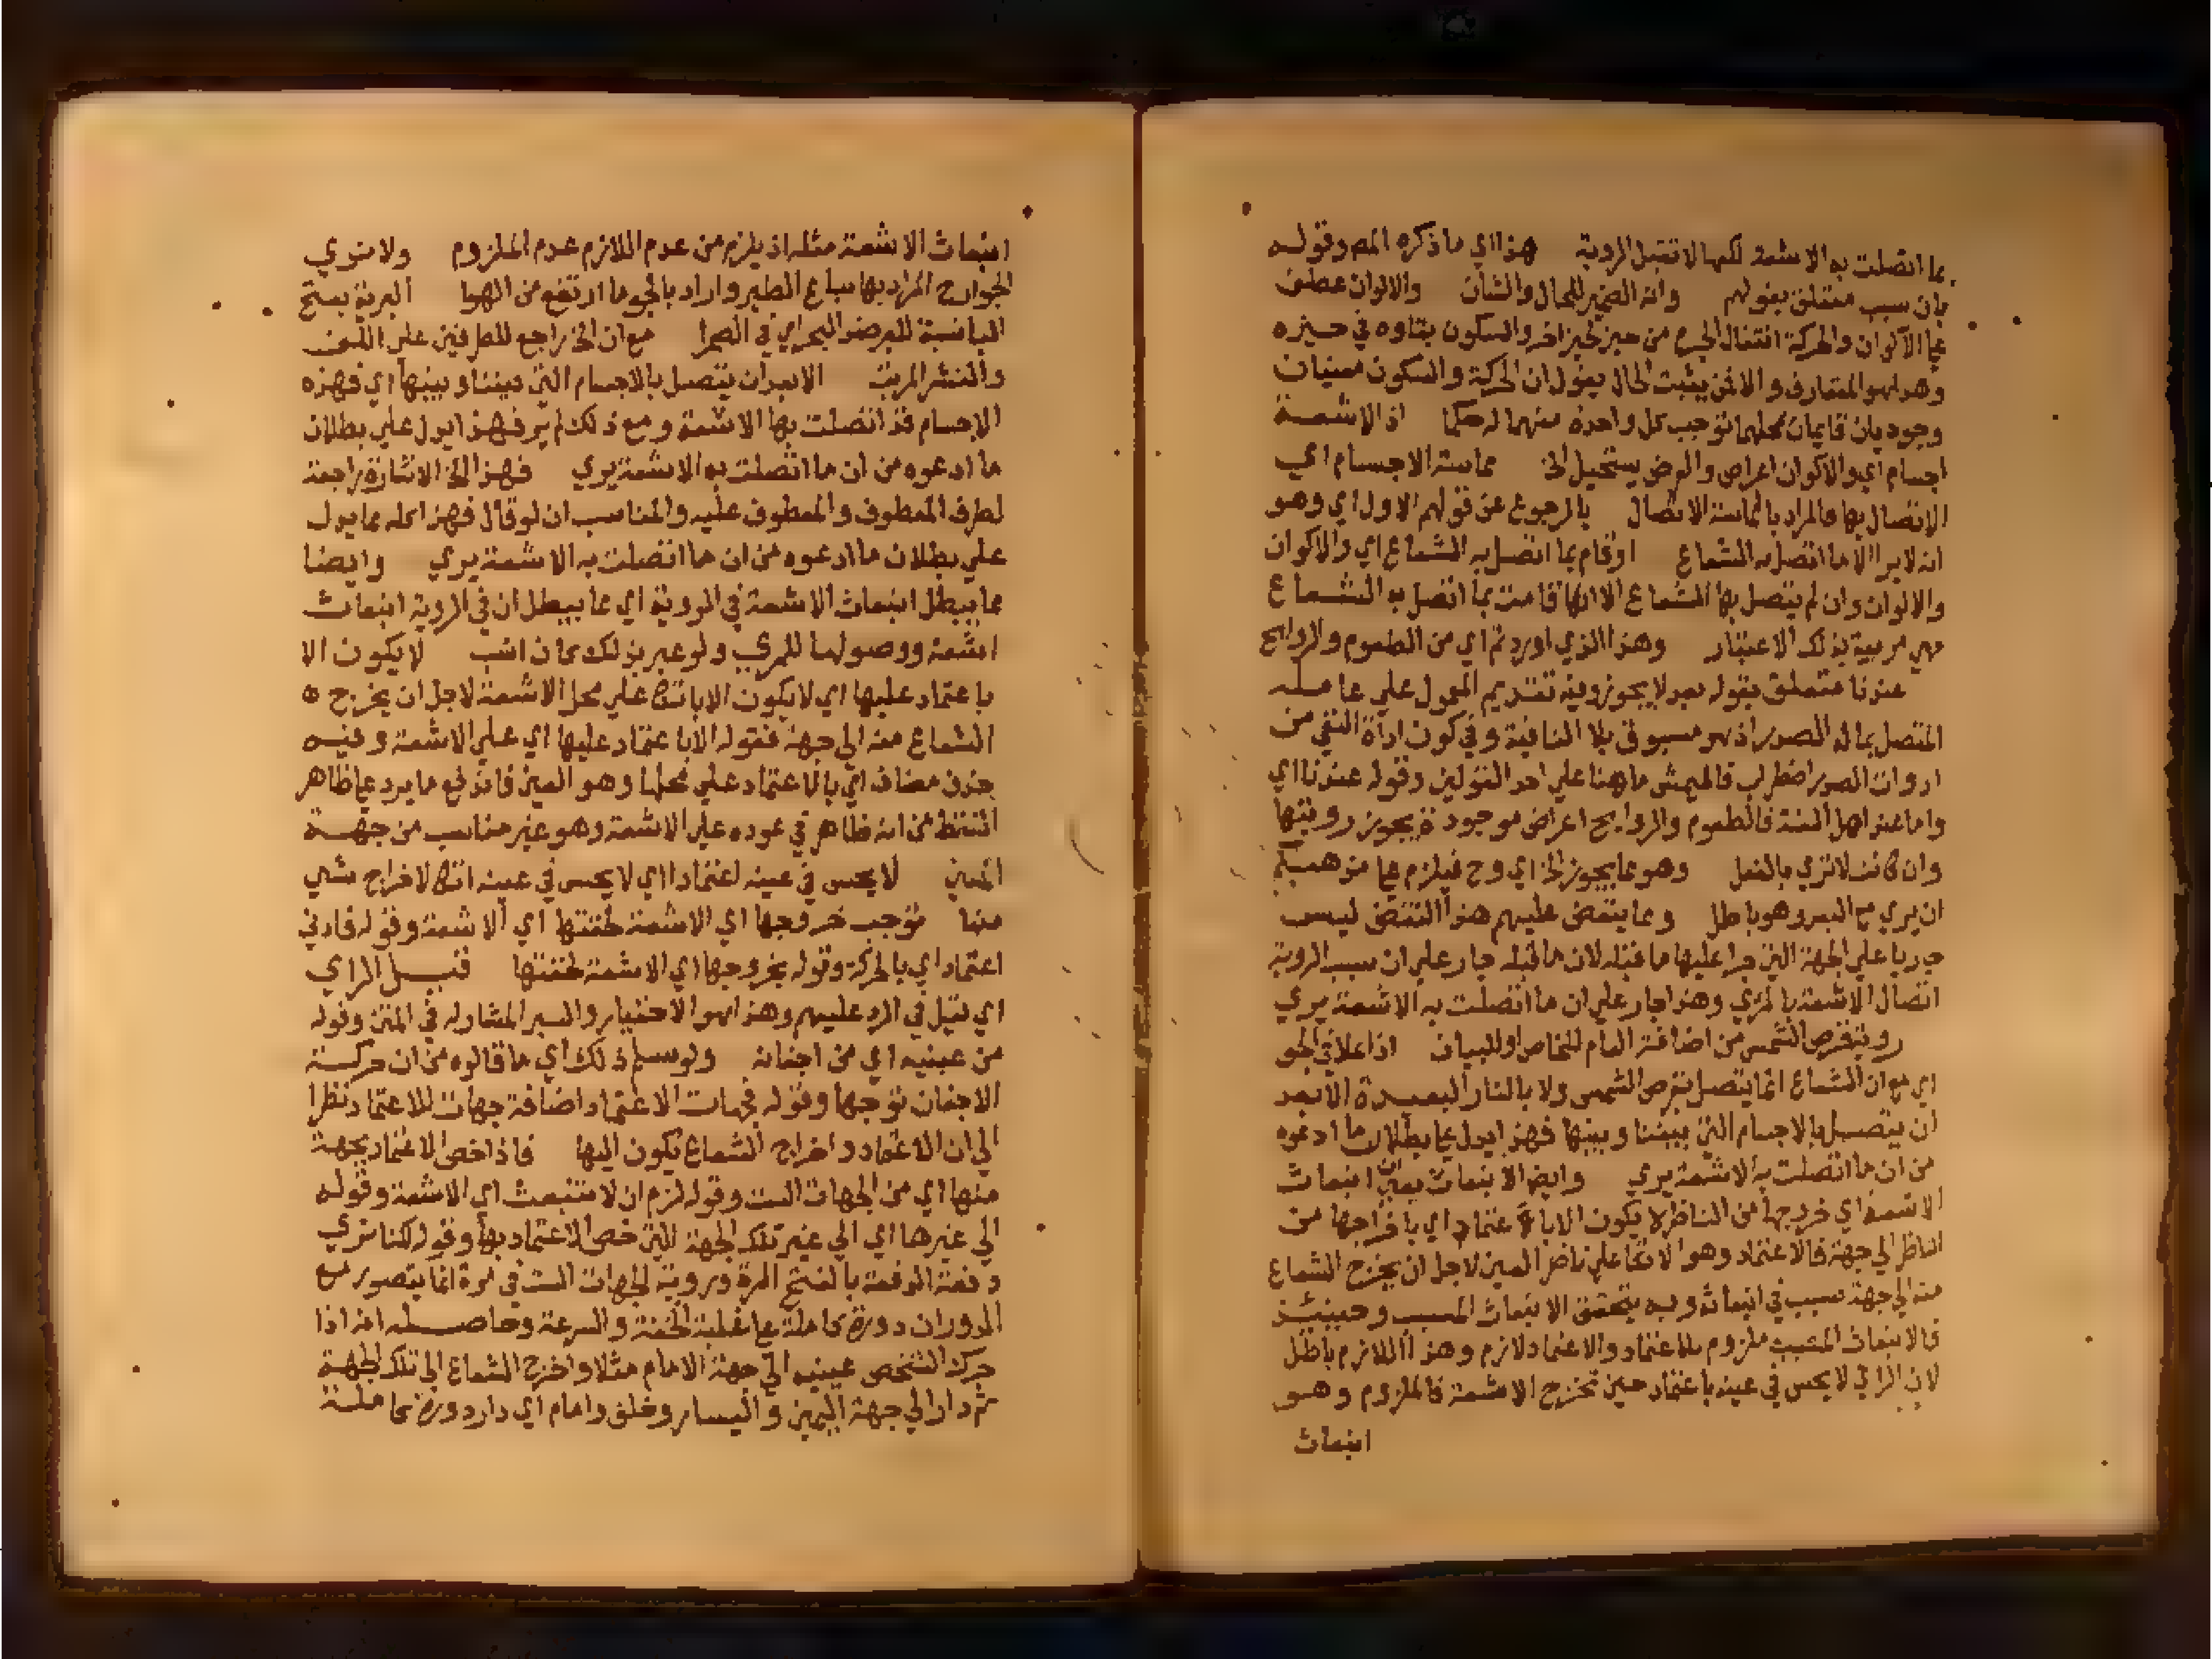 بما اتصلت به الاشعة لكنها لا تقبل الروية هذا اي ما ذكره المص وقوله
بان سبب متعلق بقولهم وانه الضمير للحال والشان والالوان عطف
علي الاكوان والحركة انتقال الجرم من حيز لحيز اخر والسكون بقاوه في حيزه
وهذا هو المتعارف والا فمن يثبت الحال يقول ان الحركة والسكون معنيان
وجوديان قايمان بمحلهما توجب كل واحدة منهما له حكما اذ الاشعة
اجسام اي والاكوان اعراض والعرض يستحيل الخ مماسة الاجسام اي
الاتصال بها فالمراد بالمماسة الاتصال بالرجوع عن قولهم الاول اي وهو
انه لا يرا الا ما اتصل به الشعاع او قام بما اتصل به الشعاع اي والاكوان
والالوان وان لم يتصل بها الشعاع الا انها قامت بما اتصل به الشعاع
فهي مرييه بذلك الاعتبار وهذا الذي اوردتم اي من الطعوم والروايح
عندنا متعلق بقوله بعد لا يجوز وفيه تقديم المعمول علي عامله
المتصل بما له الصدر اذ هو مسبوق بلا النافية وفي كون اداة النفي من
ادوات الصدر اضطراب فالميمش ما هنا علي احد القولين وقوله عندنا اي
واما عند اهل السنة فالطعوم والروايح اعراض موجودة يجوز رويتها
وان كانت لا تري بالفعل وهو مما يجوز الخ اي وح فيلزم علي مذهبكم
ان يري مع البعد وهو باطل ومما ينقض عليهم هذا النقض ليس
جاريا علي الجهة التي جرا عليها ما قبله لان ما قبله جار علي ان سبب الروية
اتصال الاشعة بالمري وهذا جار علي ان ما اتصلت به الاشعة يري
روية قرص الشمس من اضافة العام للخاص او للبيان اذا علا في الجو
اي مع ان الشعاع انما يتصل بقرص الشمس ولا بالنار البعيدة الا بعد
ان يتصل بالاجسام التي بيننا وبينها فهذا يدل علي بطلان ما ادعوه
من ان ما اتصلت به الاشعة يري وايض الانبعاث يعني انبعاث
الاشعة اي خروجها من الناظر لا يكون الا باعتماد اي باخراجها من
الناظر الي جهة فالاعتماد وهو الاتكا علي ناظر العين لاجل ان يخرج الشعاع
منه الي جهة سبب في انبعاثه وبه يتحقق الانبعاث المسبب وحينئذ
فالانبعاث المسبب ملزوم للاعتماد والاعتماد لازم وهذا اللازم باطل
لان الراي لا يحس في عينه باعتماد حين تخرج الاشعة فالملزوم وهو
انبعاث
انبعاث الاشعة مثله اذ يلزم من عدم اللازم عدم الملزوم ولا نري
الجوارح المراد بها سباع الطير واراد بالجو ما ارتفع من الهوا البرية بفتح
البا نسبة للبر ضد البحر اي في الصحرا مع ان الخ راجع للطرفين علي اللف
والنشر المرتب الا بعد ان يتصل بالاجسام التي بيننا وبينها اي فهذه
الاجسام قد اتصلت بها الاشعة ومع ذلك لم ير فهذا يدل علي بطلان
ما ادعوه من ان ما اتصلت به الاشعة يري فهذا الخ الاشارة راجعة
لطرف المعطوف والمعطوف عليه والمناسب ان لو قال فهذا كله مما يدل
علي بطلان ما ادعوه من ان ما اتصلت به الاشعة يري وايضا
مما يبطل انبعاث الاشعة في الروية اي مما يبطل ان في الروية انبعاث
اشعة ووصولها للمري ولو عبر بذلك كان انسب لا يكون الا
باعتماد عليها اي لا يكون الا باتكا علي محل الاشعة لاجل ان يخرج
الشعاع منه الي جهة فقوله الا باعتماد عليها اي علي الاشعة وفيه
حذف مضاف اي بالاعتماد علي محلها وهو العين فاندفع ما يرد علي ظاهر
اللفظ من انه ظاهر في عوده علي الاشعة وهو غير مناسب من جهة
المعني لا يحس في عينه اعتمادا اي لا يحس في عينه اتكا لاخراج شي
منها توجب خروجها اي الاشعة لخفتها اي الاشعة وقوله فادني
اعتماد اي بالحركة وقوله يخرجها اي الاشعة لخفتها قيل الراي
اي قيل في الرد عليهم وهذا هو الاختبار والسبر المشار له في المتن وقوله
من عينيه اي من اجفانه ولو سلم ذلك اي ما قالوه من ان حركة
الاجفان توجبها وقوله فجهات الاعتماد اضافة جهات للاعتماد نظرا
الي ان الاعتماد واخراج الشعاع يكون اليها فاذا خص الاعتماد بجهة
منها اي من الجهات الست وقوله لزم ان لا تنبعث اي الاشعة وقوله
الي غيرها اي الي غير تلك الجهة التي خص الاعتماد بها وقوله لكنا نري
دفعة الدفعة بالفتح المرة وروية الجهات الست في مرة انما يتصور مع
الدوران دورة كاملة مع غلبة الخفة والسرعة وحاصله انه اذا
حرك الشخص عينيه الي جهة الامام مثلا واخرج الشعاع الي تلك الجهة
ثم دار الي جهة اليمين واليسار وخلف وامام اي دار دورة كاملة